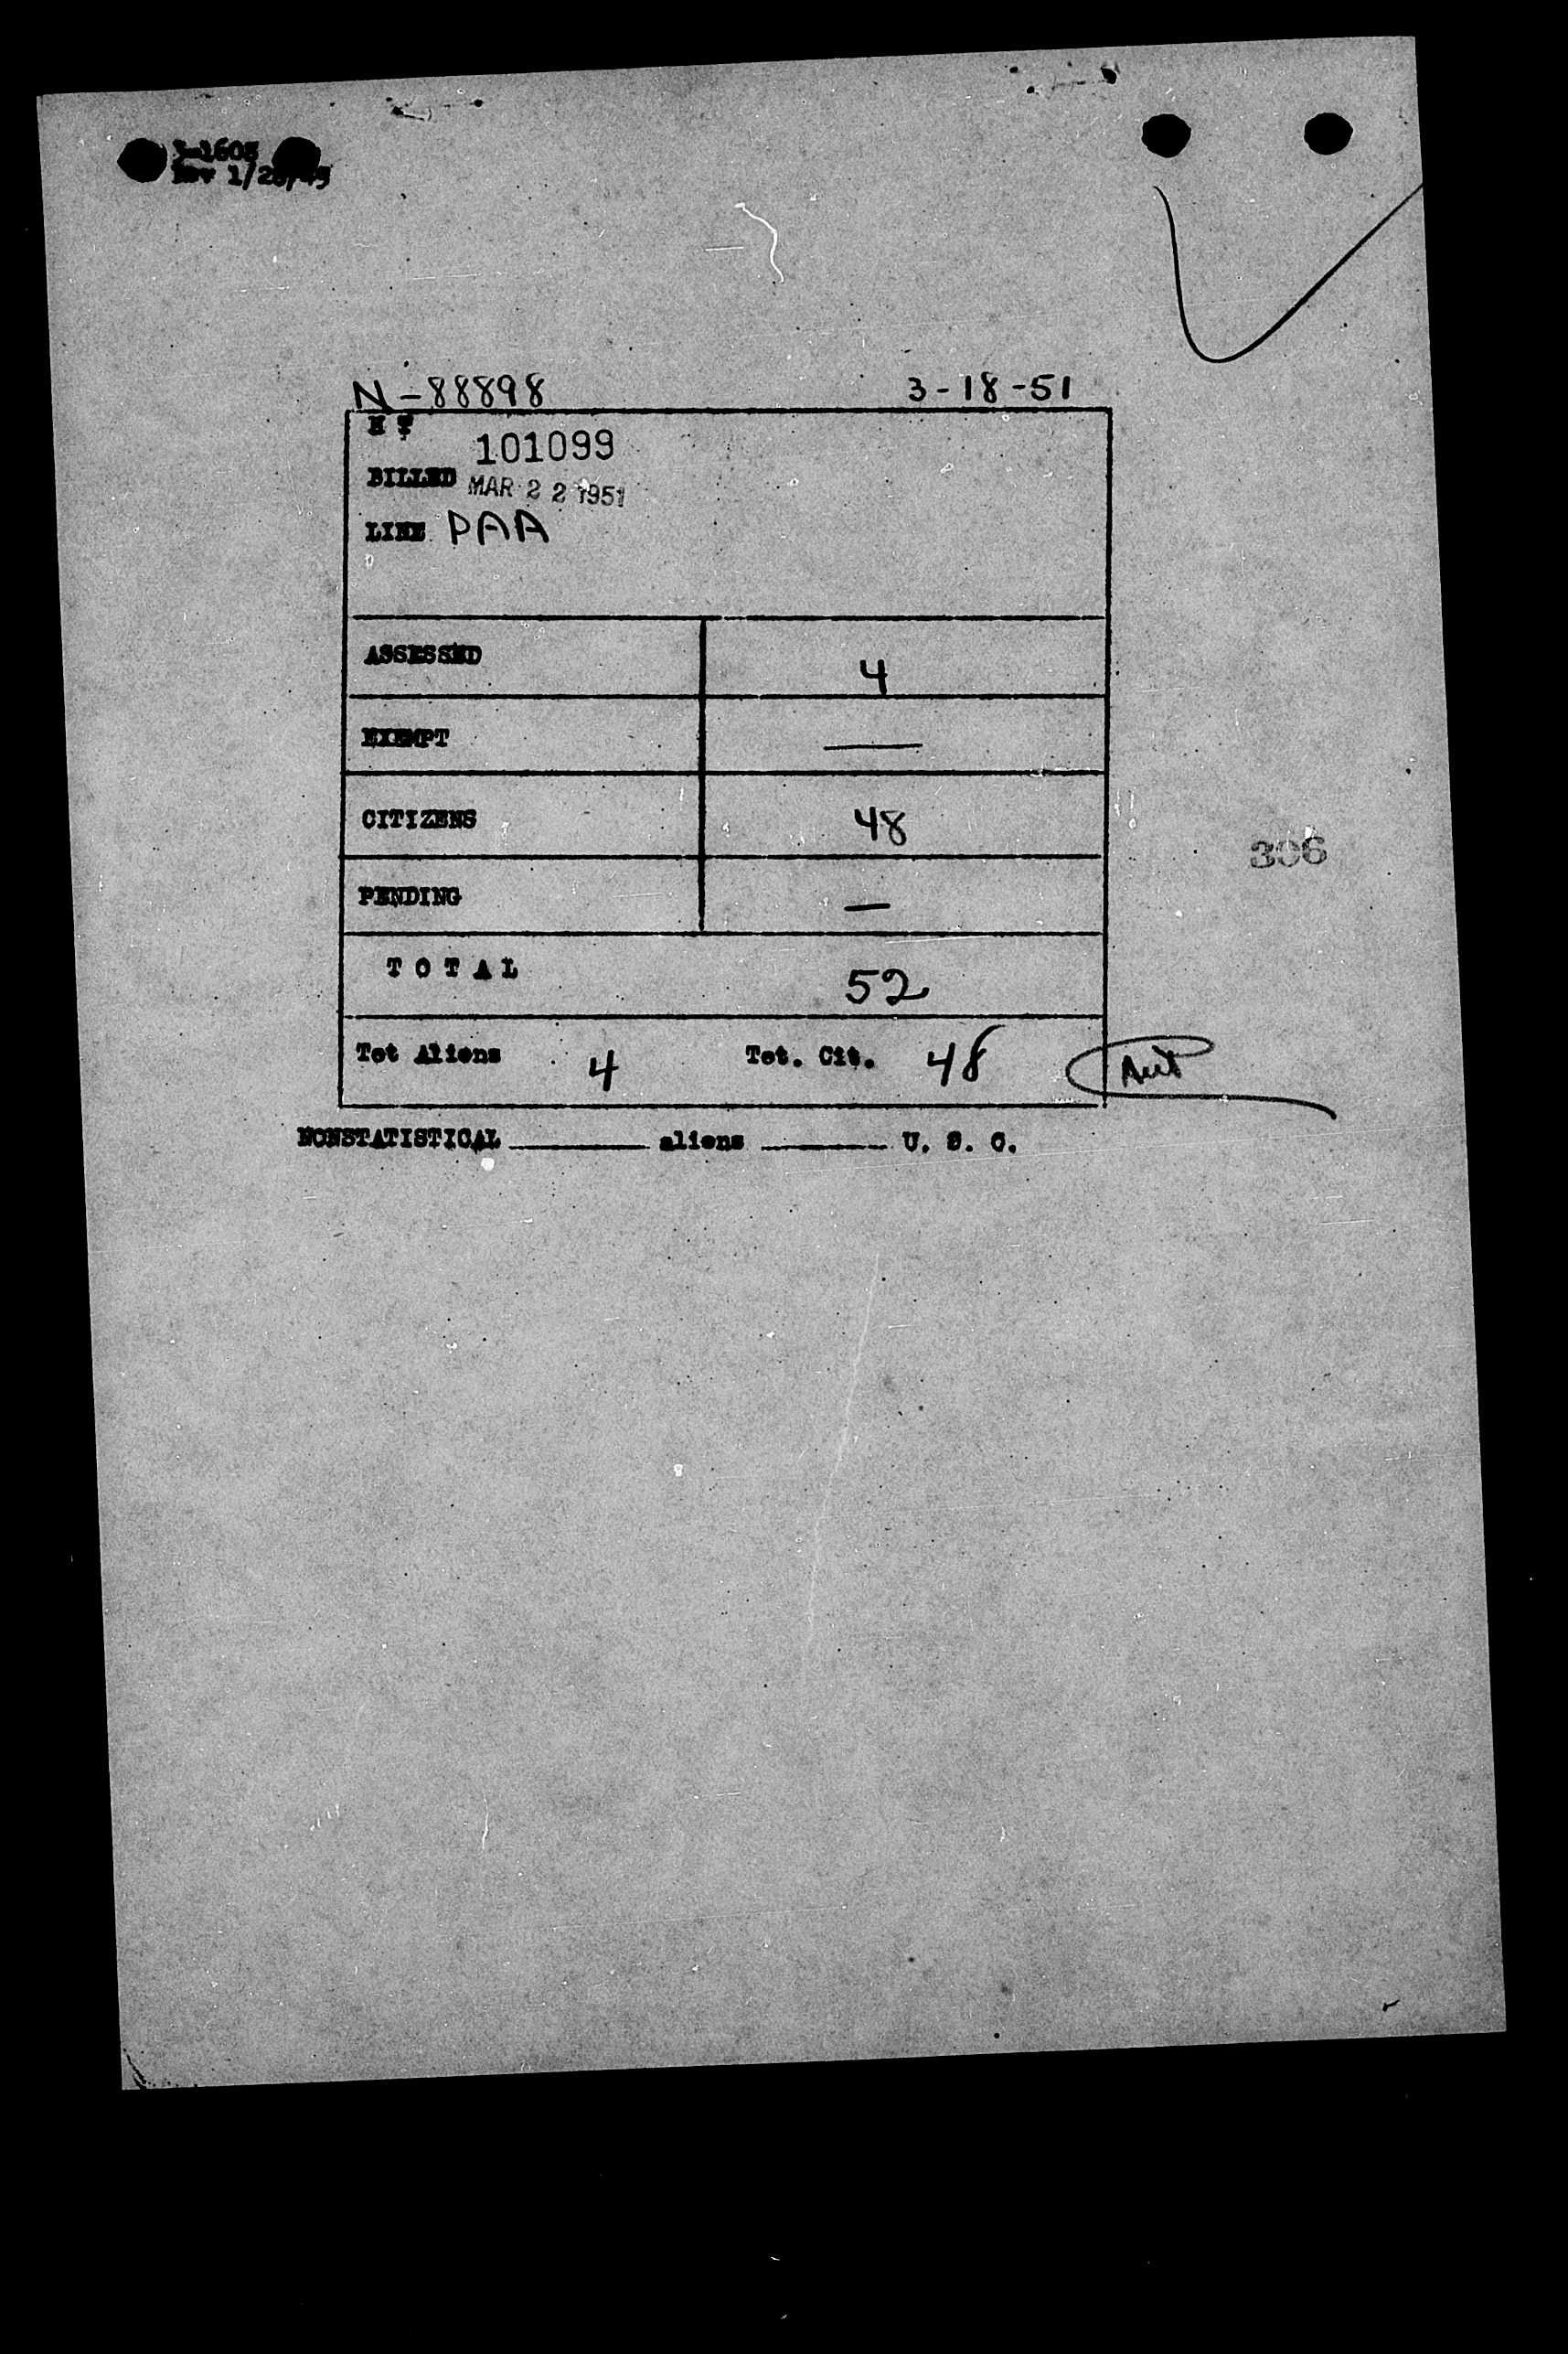 3-1603
Rev 1/28/45
N-88898 3-18-51
H T
101099
BILLED MAR 22 1951
LINE PAA
ASSESSED 4
EXEMPT —
CITIZENS 48
306
PENDING —
TOTAL 52
Tot Aliens 4 Tot. Cit. 48
NONSTATISTICAL ________ aliens ________ U. S. C.